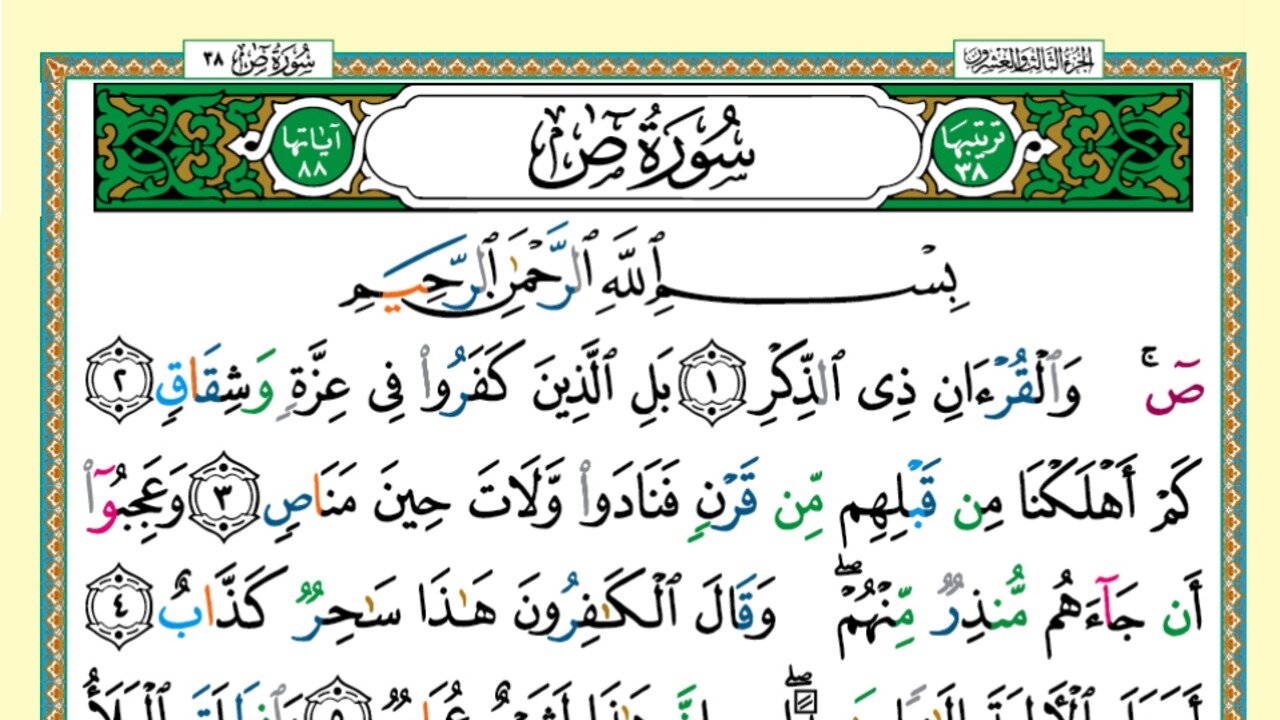 الجزء الثالث والعشرون
سُورَةُ صٓ ٣٨
ترتيبها
٣٨
سُورَةُ صٓ
آياتها
٨٨
بِسْمِ ٱللَّهِ ٱلرَّحْمَٰنِ ٱلرَّحِيمِ
صٓ ۚ وَٱلْقُرْءَانِ ذِى ٱلذِّكْرِ ١ بَلِ ٱلَّذِينَ كَفَرُوا۟ فِى عِزَّةٍ وَشِقَاقٍ ٢
كَمْ أَهْلَكْنَا مِن قَبْلِهِم مِّن قَرْنٍ فَنَادَوا۟ وَّلَاتَ حِينَ مَنَاصٍ ٣ وَعَجِبُوٓا۟
أَن جَآءَهُم مُّنذِرٌ مِّنْهُمْ ۖ وَقَالَ ٱلْكَٰفِرُونَ هَٰذَا سَٰحِرٌ كَذَّابٌ ٤
إِنَّ هَٰذَا لَشَىْءٌ ٥